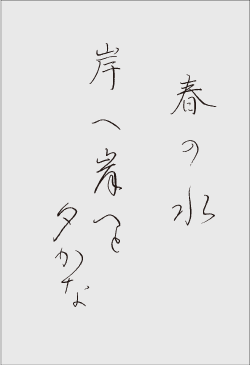 春の水
岸へ岸へと
夕かな